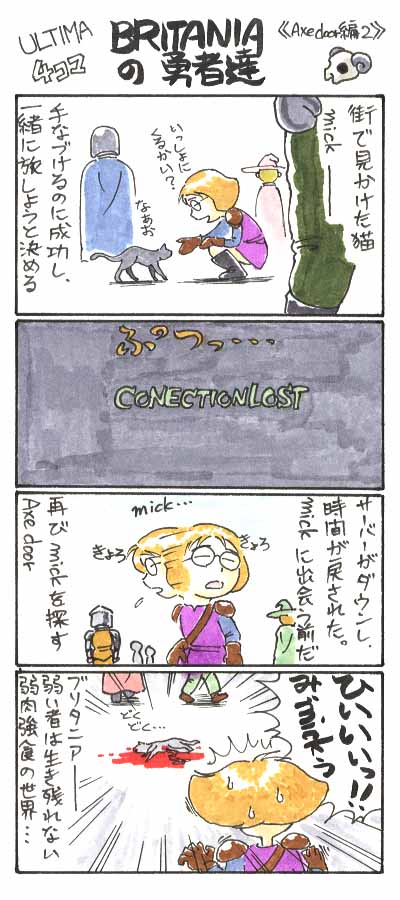 ULTIMA
4コマ
BRITANIA
の勇者達
《Axedoor編2》
街で見かけた猫
mick──
いっしょに
くるかい?
なぁお
手なづけるのに成功し、
一緒に旅しようと決める
ぷつっ・・・・
CONECTION LOST
サーバーがダウンし、
時間が戻された。
mickに出会う前だ
mick...
きょろ
きょろ
再びmickを探す
Axedoor
ひいいいっ!!
みぎゃう
どく
どく…
ブリタニア──
弱い者は生き残れない
弱肉強食の世界…